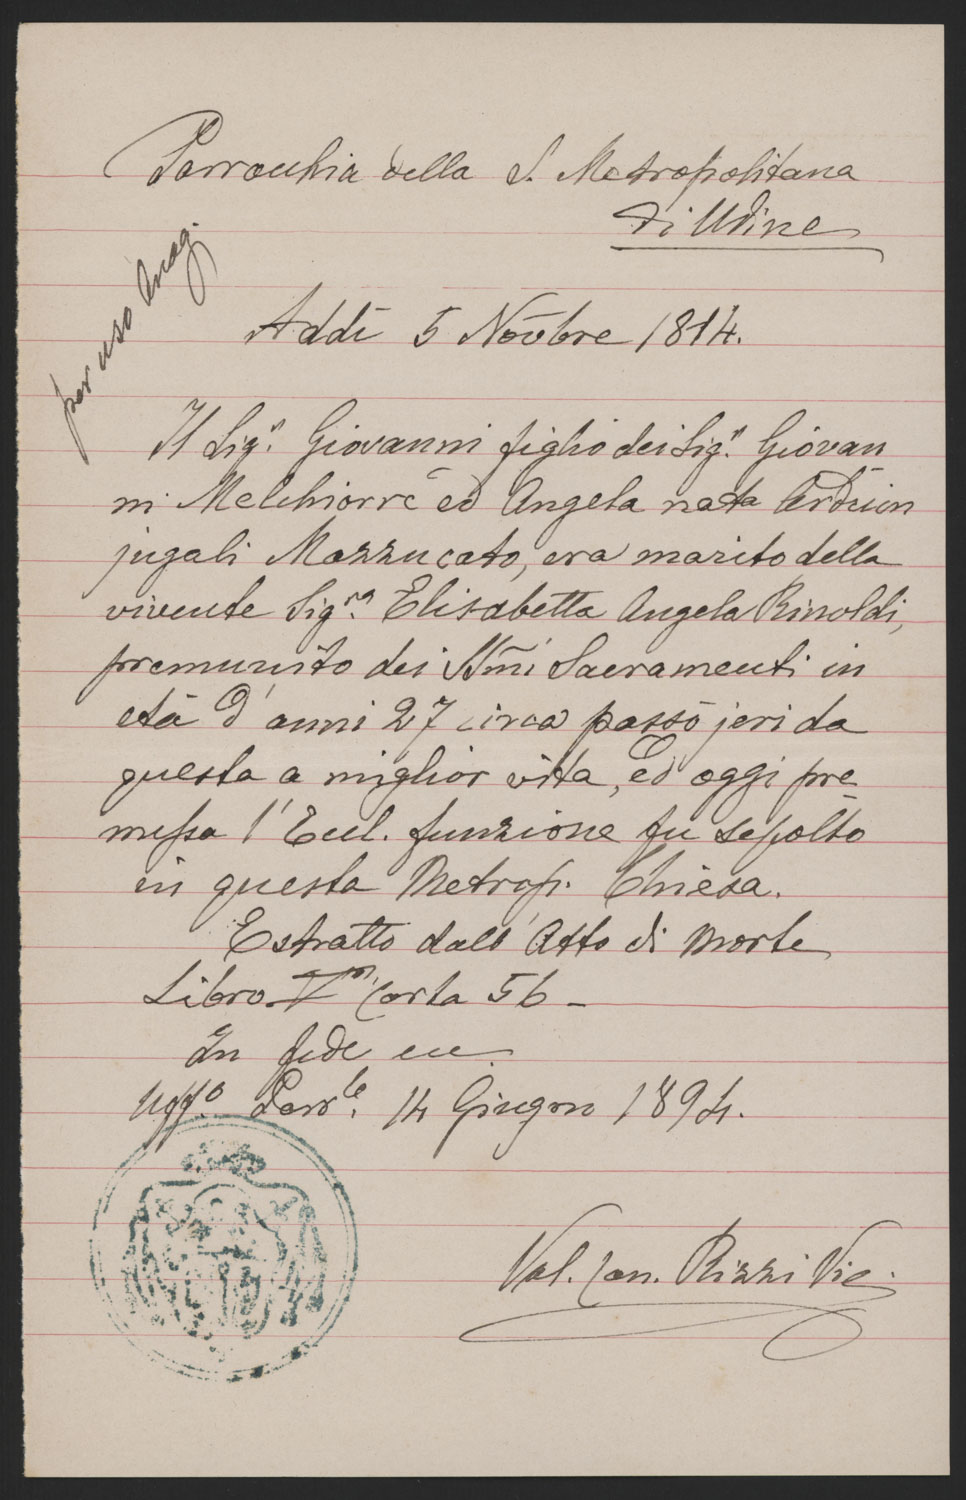 Parrocchia della S. Metropolitana
di Udine
per uso Anag.
Addi 5 Nov̄bre 1814.
Il Sigr. Giovanni figlio dei Sigri. Giovan
ni Melchiorre ed Angela nata Arduin
jugali Mazzucato, era marito della
vivente Sigra. Elisabetta Angela Rinoldi,
premunito dei SSm̄i Sacramenti in
età d'anni 27 circa passò jeri da
questa a miglior vita, ed oggi pre
messa l'Eccl. funzione fu sepolto
in questa Metrop. Chiesa.
Estratto dall'Atto di Morte
Libro Vm. Carta 56 -
In fede ecc.
Uffo. Parrle. 14 Giugno 1894.
Val. Can. Rizzi Vic.